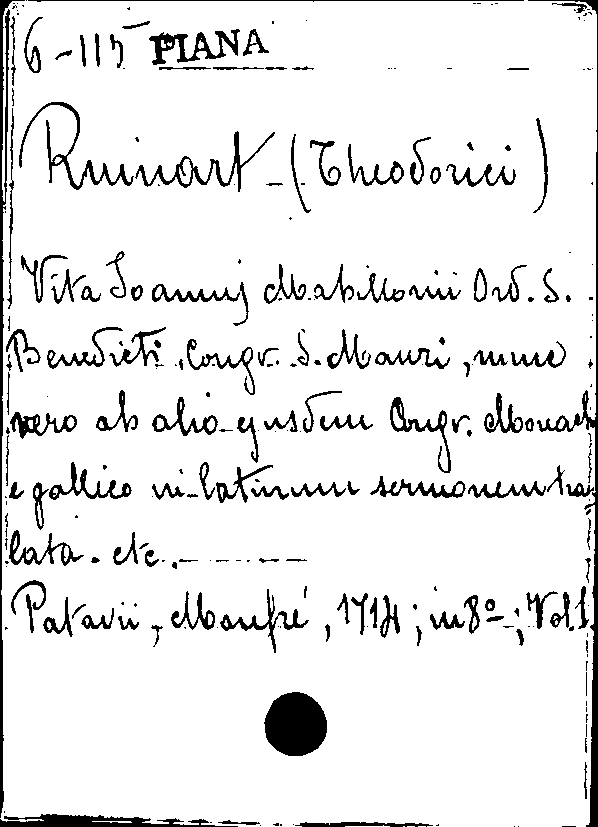 6-115 PIANA
Ruinart (Theodorici)
Vita Joannis Mabillonii Ord. S.
Benedicti, Congr. S. Mauri, nunc
vero ab alio ejusdem Congr. Monach
e gallico in latinum sermonem tra=
lata. etc.
Patavii, Manfré, 1714; in 8º; Vol. 1.